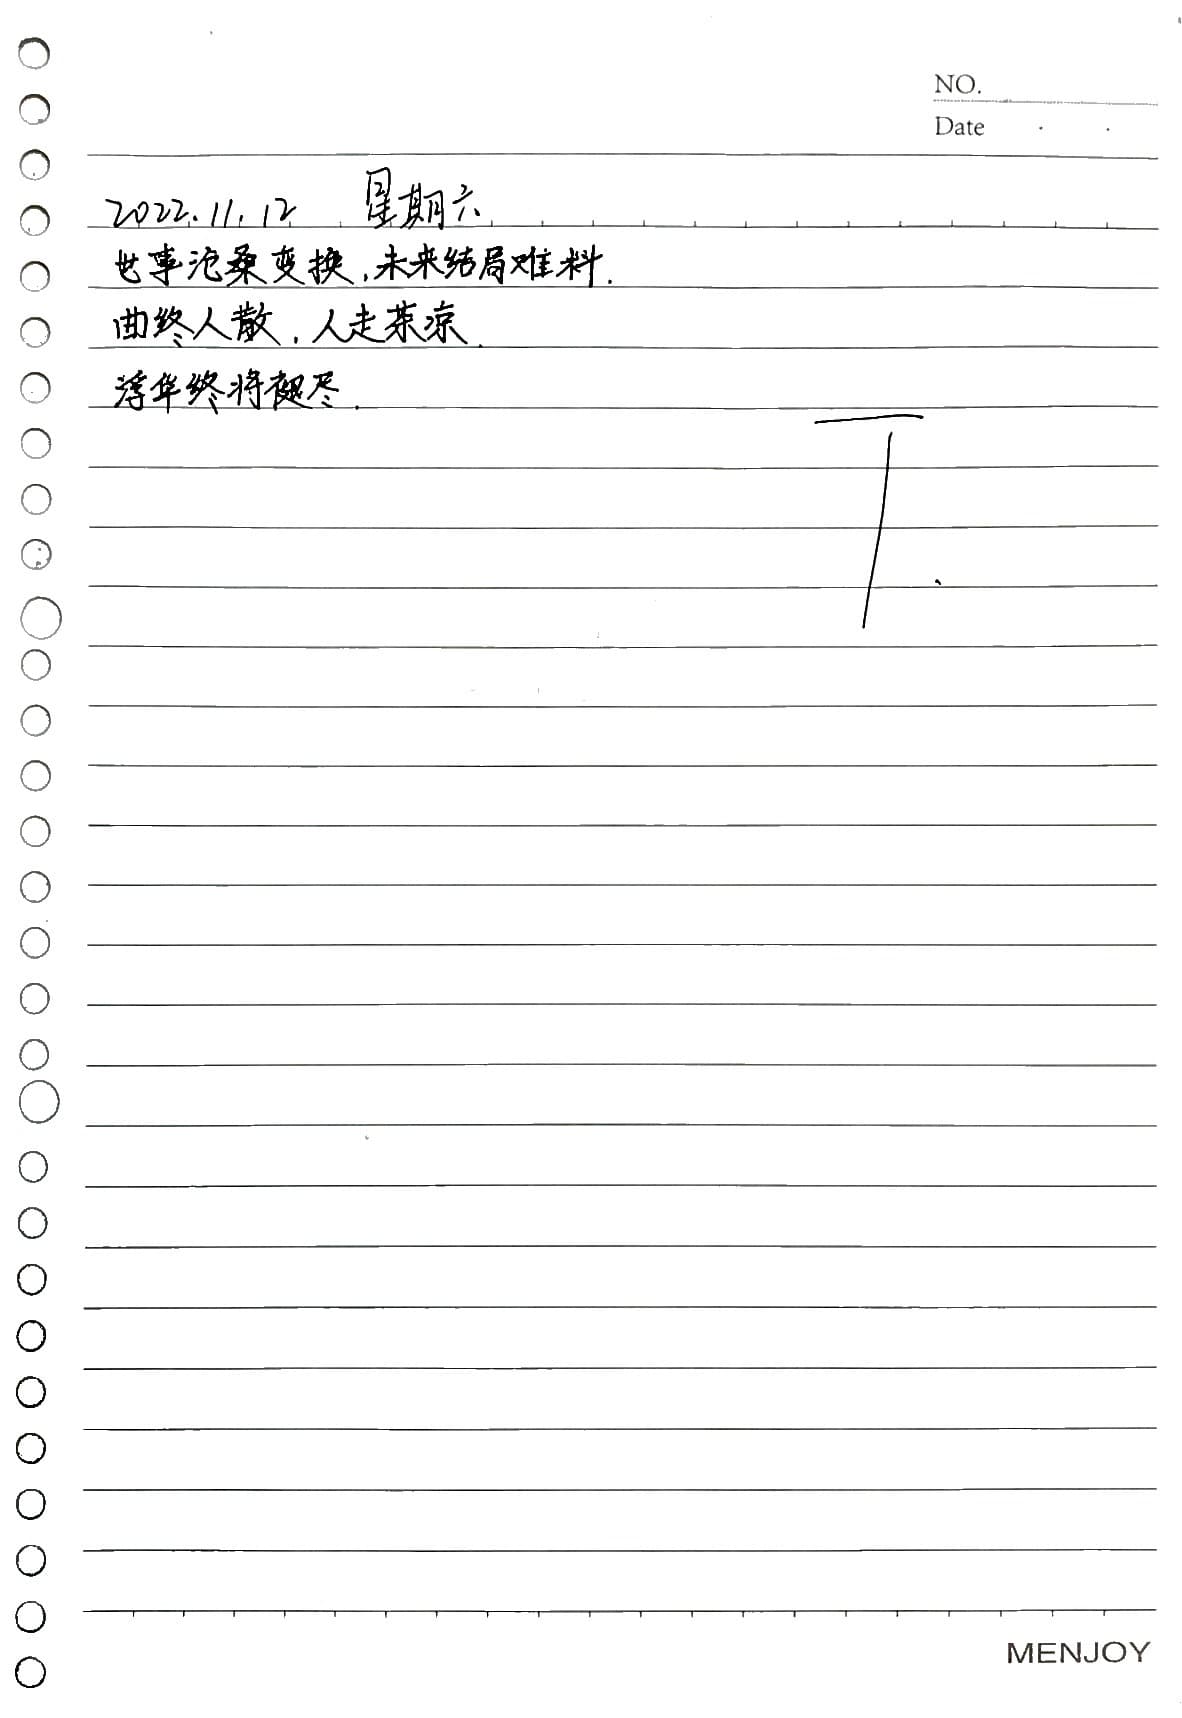 NO.
Date
2022.11.12 星期六
世事沧桑变换,未来结局难料.
曲终人散,人走茶凉.
浮华终将褪尽.
T.
MENJOY